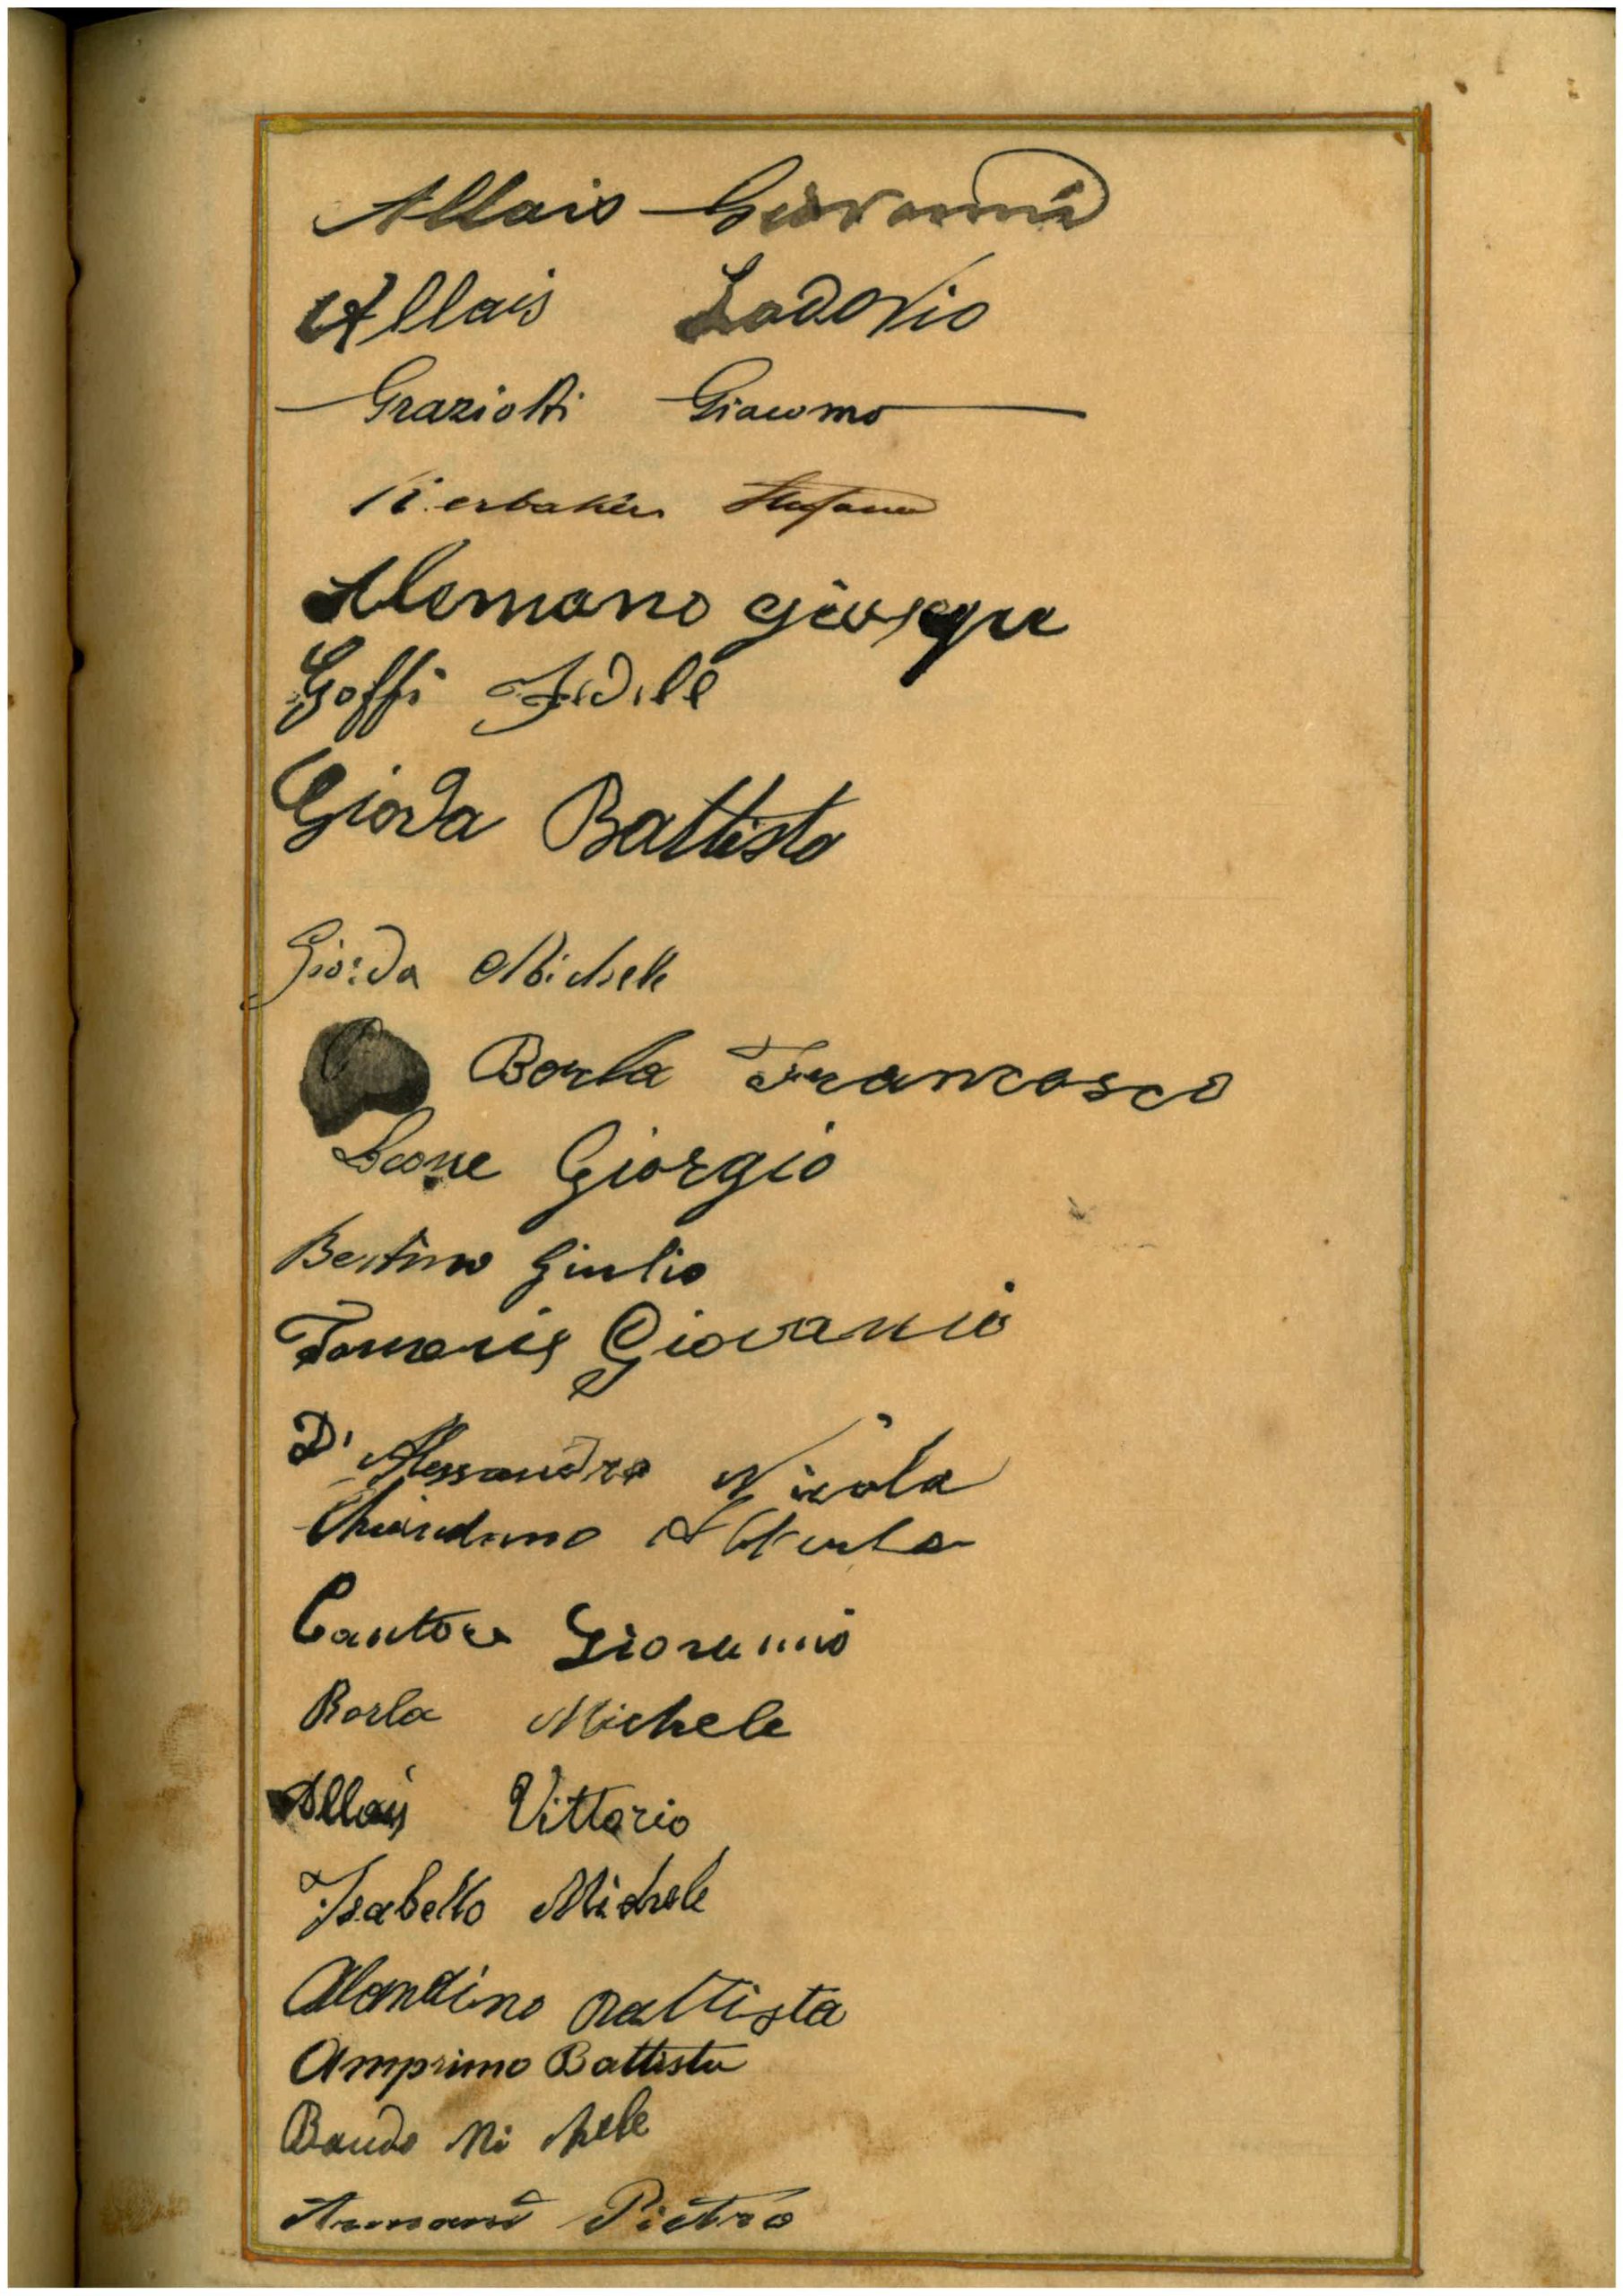 Allais Giovanni
Allais Lodovio
Graziotti Giacomo
Kerbaker Stefano
Alemano
Goffi Fidele
Giorda Battista
Giorda Michele
Borla Francosco
Leone Giorgio
Bertino Giulio
Tomeris Giovanni
D' Alessandro Nicola
Cantore Giovanni
Borla Michele
Allais Vittorio
Isabello Michele
Alandino Battista
Amprimo Battista
Baudo Michele
Armand Pietro